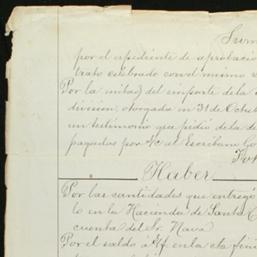 Sum
por el espediente de aprobacio
trato celebrado con el mismo s
Por la mitad del importe de la
division, otorgada en 31 de Octub
un testimonio que pidió de la de
pagados por ¼ al Escribano Go
Haber
Por las cantidades que entregó
lo en la Hacienda de Santa C
cuenta del Sr. Nava
Por el saldo á ff. en la cta fin